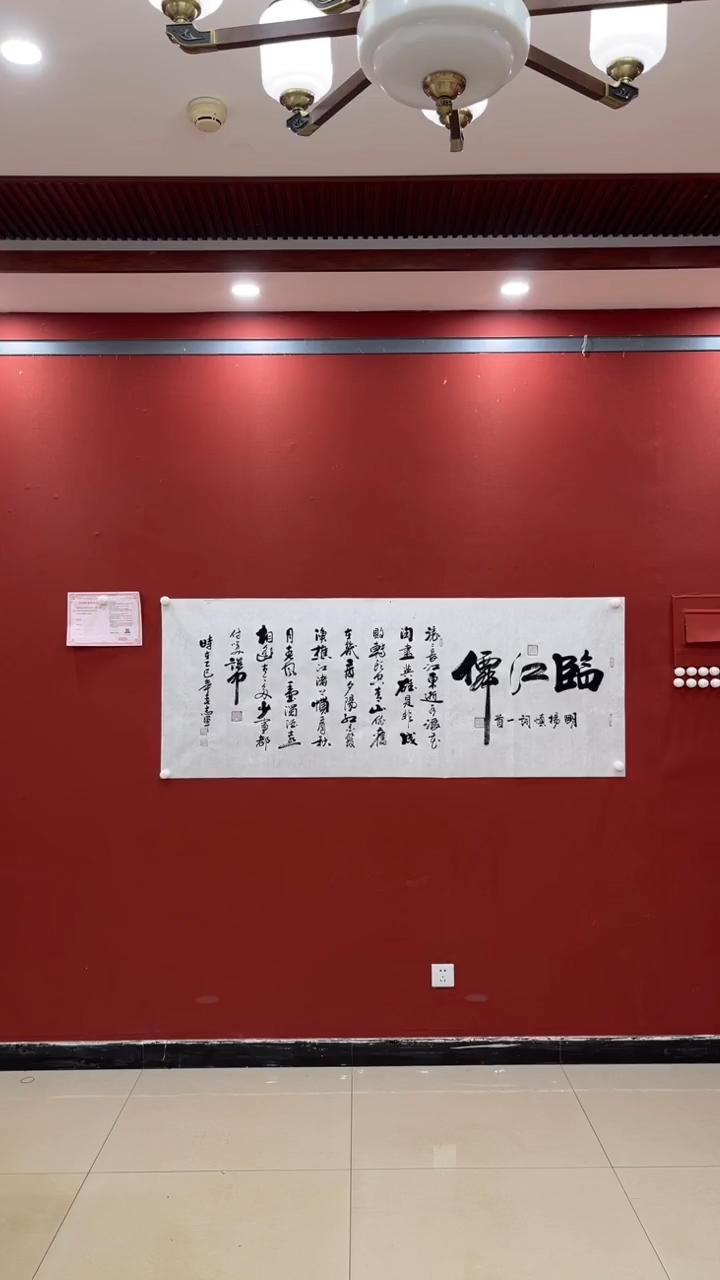 臨江僊
明楊慎詞一首
滚〻長江東逝水浪花
淘盡英雄是非成
敗轉頭空青山依舊
在幾度夕陽紅白髮
漁樵江渚上慣看秋
月春風一壺濁酒喜
相逢古今多少事都
付笑談中
時在乙巳年